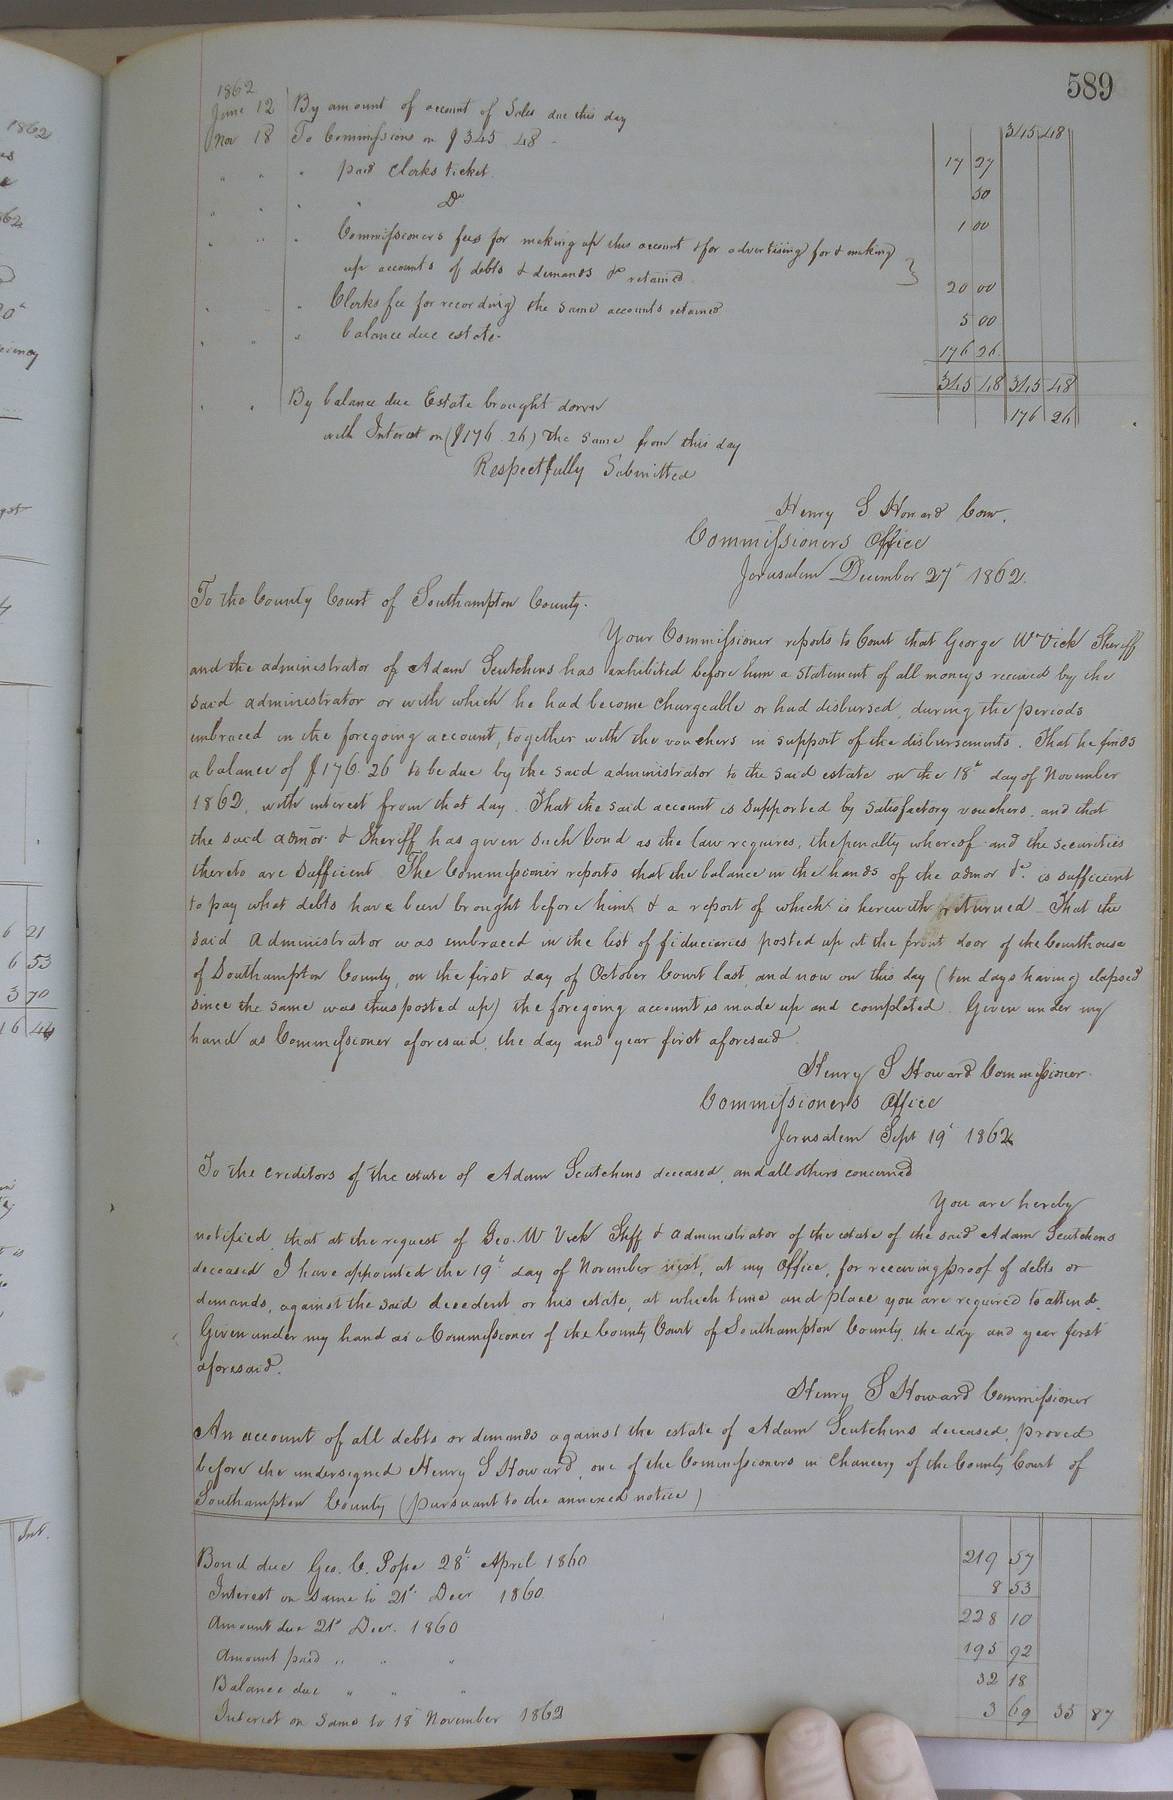 589
1862
June 12 By amount of account of Sales due this day 345 48
Nov 18 To Commissions on $345.48 17 27
" " " paid Clerks ticket 50
" " " " Do 1 00
" " " Commissioners fees for making up this account & for advertising for & making
up accounts of debts & demands &c retained 20 00
" " " Clerks fee for recording the same accounts retained 5 00
" " " balance due estate 176 26
345 48 345 48
" " By balance due Estate brought down 176 26
with Interest on ($176.26) the same from this day
Respectfully Submitted
Henry S Howard Com.
Commissioners Office
Jerusalem December 27th 1862.
To the County Court of Southampton County.
Your Commissioner reports to Court that George W Vick Sheriff
and the administrator of Adam Scutchens has exhibited before him a statement of all moneys received by the
said administrator or with which he had become chargeable or had disbursed, during the periods
embraced in the foregoing account, together with the vouchers in support of the disbursements. That he finds
a balance of $176.26 to be due by the said administrator to the said estate on the 18th day of November
1862, with interest from that day. That the said account is supported by satisfactory vouchers, and that
the said admor & Sheriff has given such bond as the law requires, the penalty whereof and the securities
thereto are sufficient The Commissioner reports that the balance in the hands of the admor &c. is sufficient
to pay what debts have been brought before him & a report of which is herewith returned – That the
said Administrator was embraced in the list of fiduciaries posted up at the front door of the Courthouse
of Southampton County, on the first day of October Court last, and now on this day (ten days having elapsed
since the same was thus posted up) the foregoing account is made up and completed. Given under my
hand as Commissioner aforesaid, the day and year first aforesaid
Henry S Howard Commissioner
Commissioners Office
Jerusalem Sept 19t 1862
To the creditors of the estate of Adam Scutchens deceased, and all others concerned
You are hereby
notified, that at the request of Geo. W Vick Shff & administrator of the estate of the said Adam Scutchens
deceased I have appointed the 19t day of November next, at my Office, for receiving proof of debts or
demands, against the said decedent, or his estate, at which time and place you are required to attend.
Given under my hand as a Commissioner of the County Court of Southampton County, the day and year first
aforesaid.
Henry S Howard Commissioner
An account of all debts or demands against the estate of Adam Scutchens deceased, proved
before the undersigned Henry S Howard, one of the Commissioners in Chancery of the County Court of
Southampton County (pursuant to the annexed notice)
Bond due Geo. C. Pope 28t April 1860 219 57
Interest on same to 21st Decr 1860 8 53
Amount due 21st Decr. 1860 228 10
Amount paid " " " 195 92
Balance due " " " 32 18
Interest on Same to 18t November 1862 3 69 35 87
1862
6 21
6 53
3 70
16 44
Int.